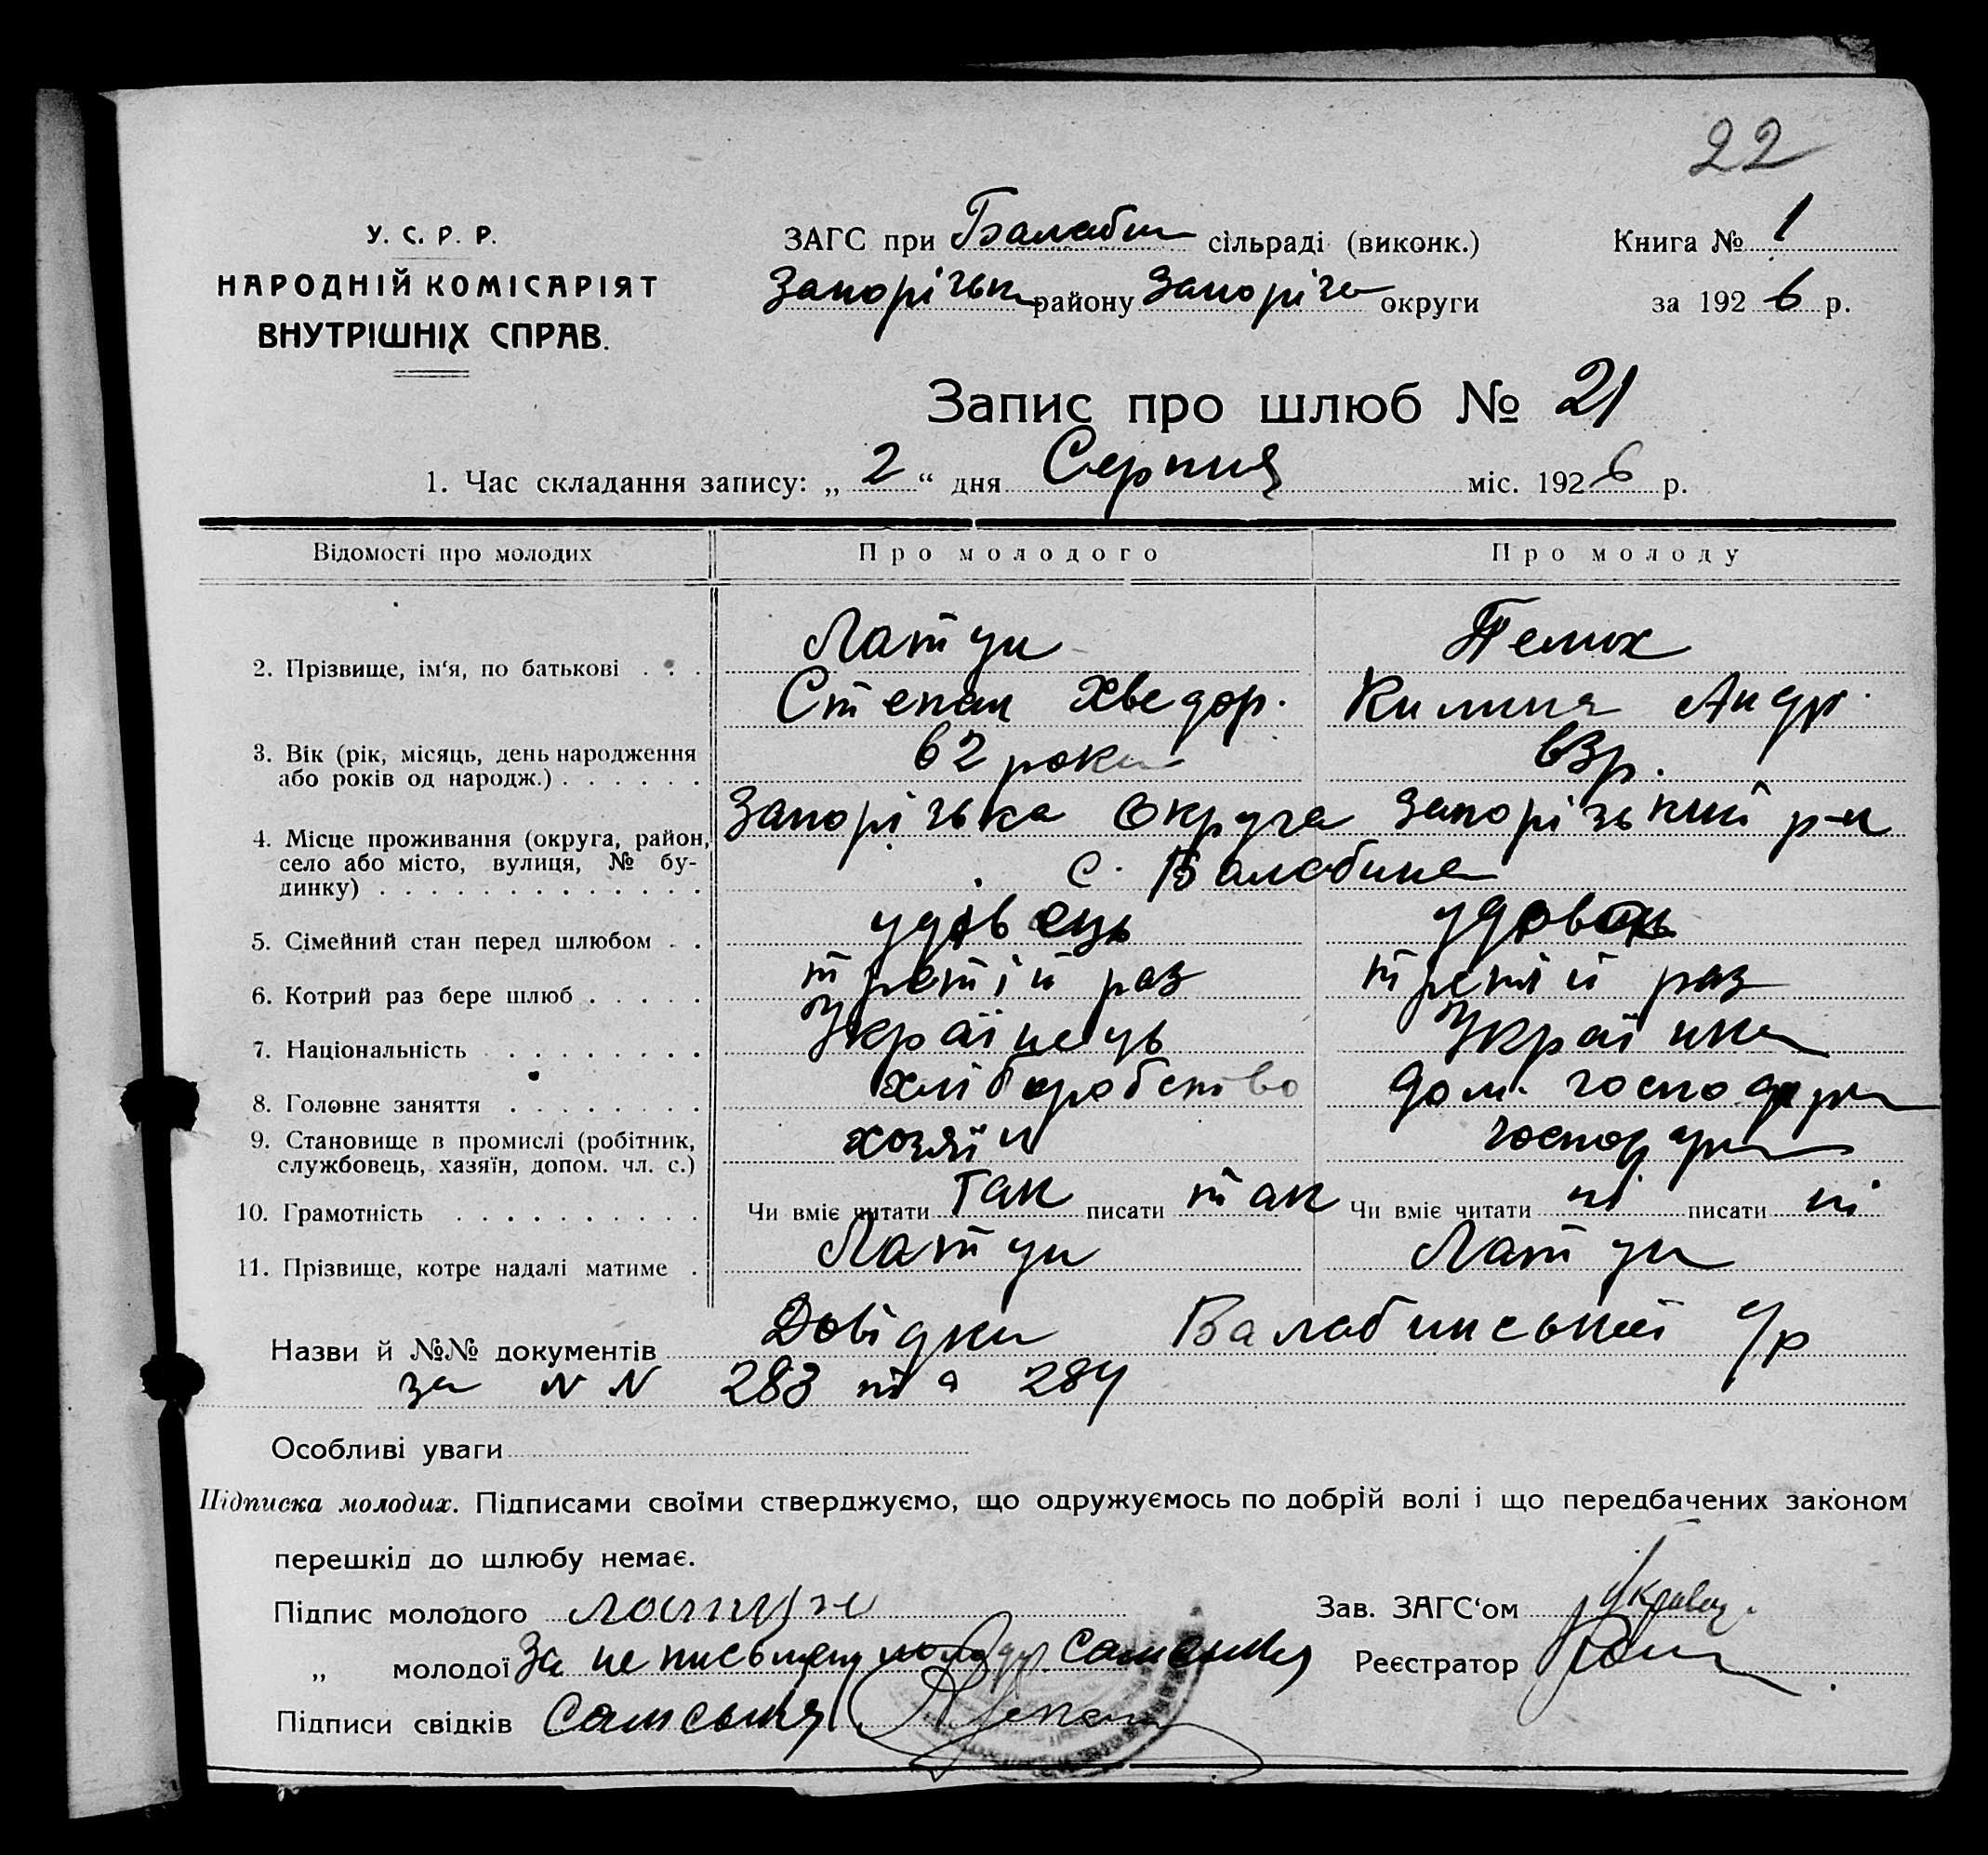 22
У. С. Р. Р.
НАРОДНІЙ КОМІСАРІЯТ
ВНУТРІШНІХ СПРАВ.
ЗАГС при Балабин сільраді (виконк.)
Запорізьк району Запоріз округи
Книга № 1
за 1926 р.
Запис про шлюб № 21
1. Час складання запису: „ 2 “ дня Серпня міс. 1926 р.
Відомості про молодих Про молодого Про молоду
2. Прізвище, ім‘я, по батькові . . . Латун Телюх
Степан Хведор. Килина Андр.
3. Вік (рік, місяць, день народження
або років од народж.) . . . . . . 62 роки 63р.
4. Місце проживання (округа, район,
село або місто, вулиця, № бу-
динку) . . . . . . . . . . . . .
Запорізька Округа Запорізький р-н
с. Балабине
5. Сімейний стан перед шлюбом . . удовець
6. Котрий раз бере шлюб . . . . . третій раз третій раз
7. Національність . . . . . . . . Українець Українка
8. Головне заняття . . . . . . . . хліборобство дом. господарка
9. Становище в промислі (робітник,
службовець, хазяїн, допом. чл. с.) хозяїн господарка
10. Грамотність . . . . . . . . . . Чи вміє читати так писати так Чи вміє читати ні писати ні
11. Прізвище, котре надалі матиме . Латун Латун
Назви й №№ документів Довідки Балабинської с/р
за N N 283 та 284
Особливі уваги
Підписка молодих. Підписами своїми стверджуємо, що одружуємось по добрій волі і що передбачених законом
перешкід до шлюбу немає.
Підпис молодого Латун Зав. ЗАГС‘ом
„ молодої За неписьмену молоду Реєстратор
Підписи свідків